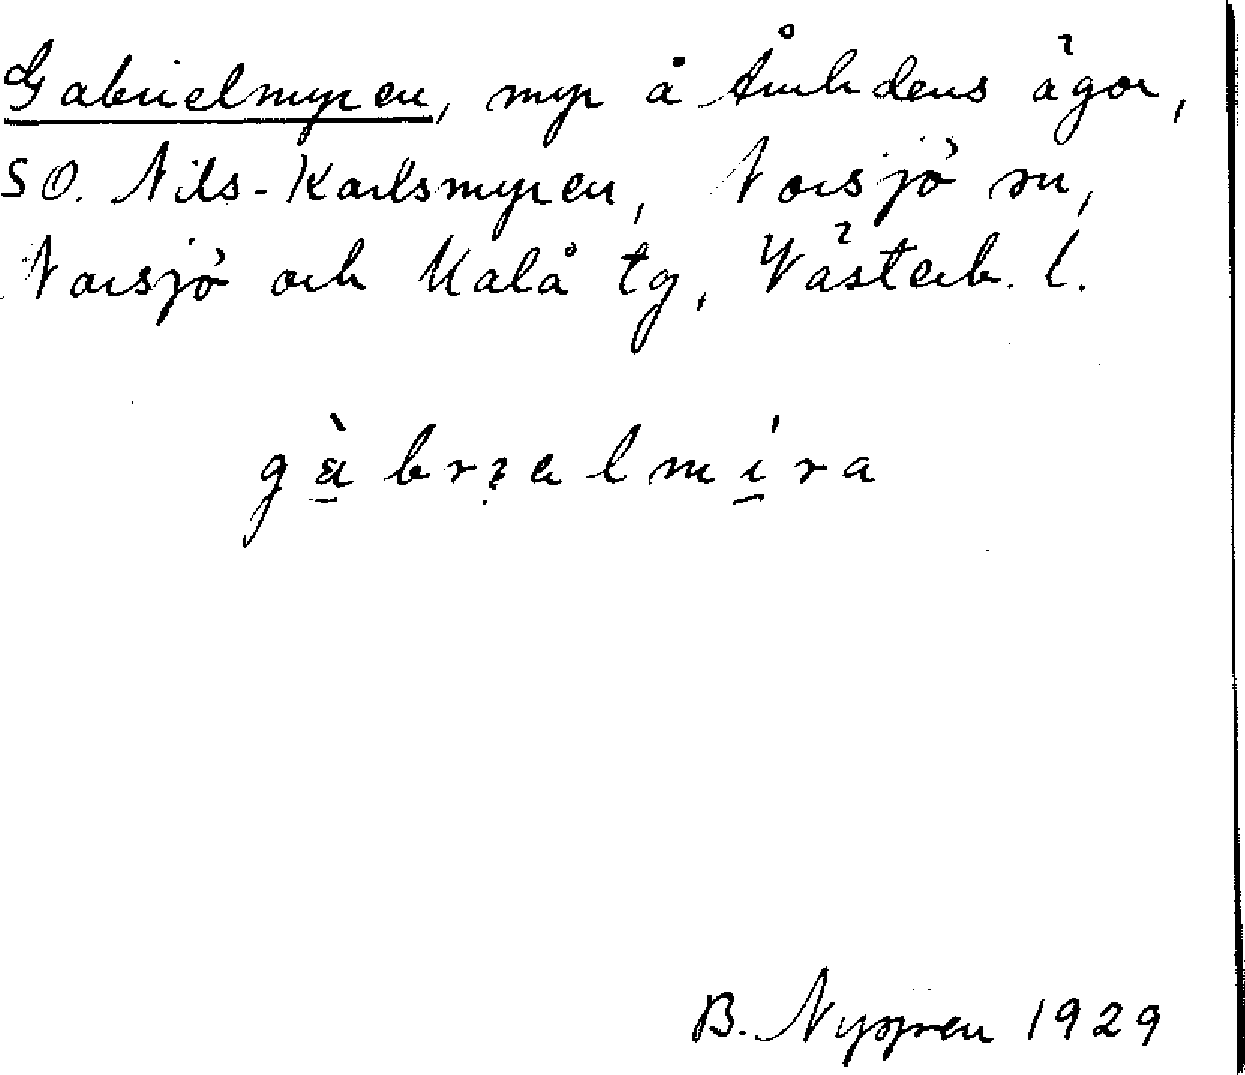 Gabrielmyren, myr å Åmlidens ägor,
SO. Nils-Karlsmyren, Norsjö sn,
Norsjö och Malå tg, Västerb. l.
gàbrɩelmíra
B. 1929